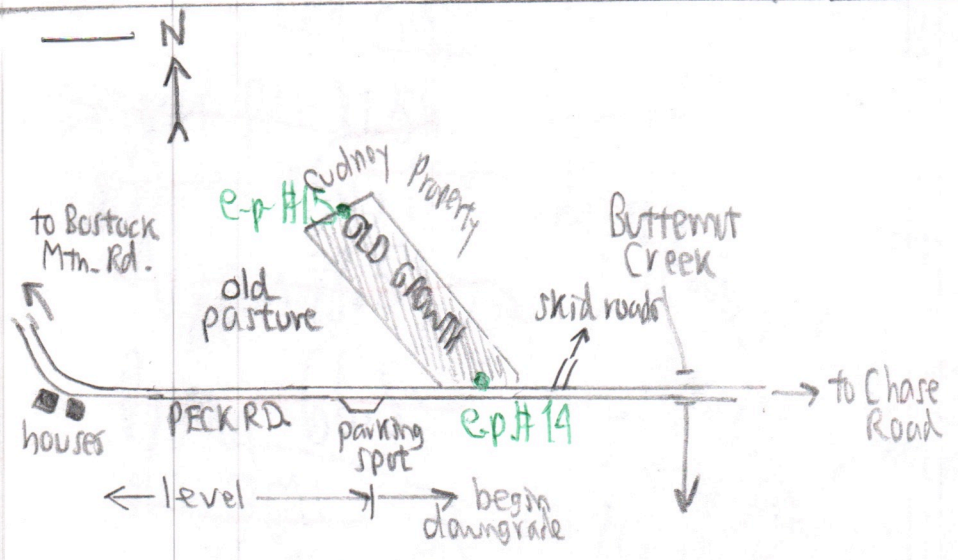 N
Cudney Property
e-p #15
OLD GROWTH
to Bostock
Mtn. Rd.
old
pasture
Butternut
Creek
skid roads
to Chase
Road
PECK RD.
parking
spot
e-p #14
houses
level
begin
downgrade